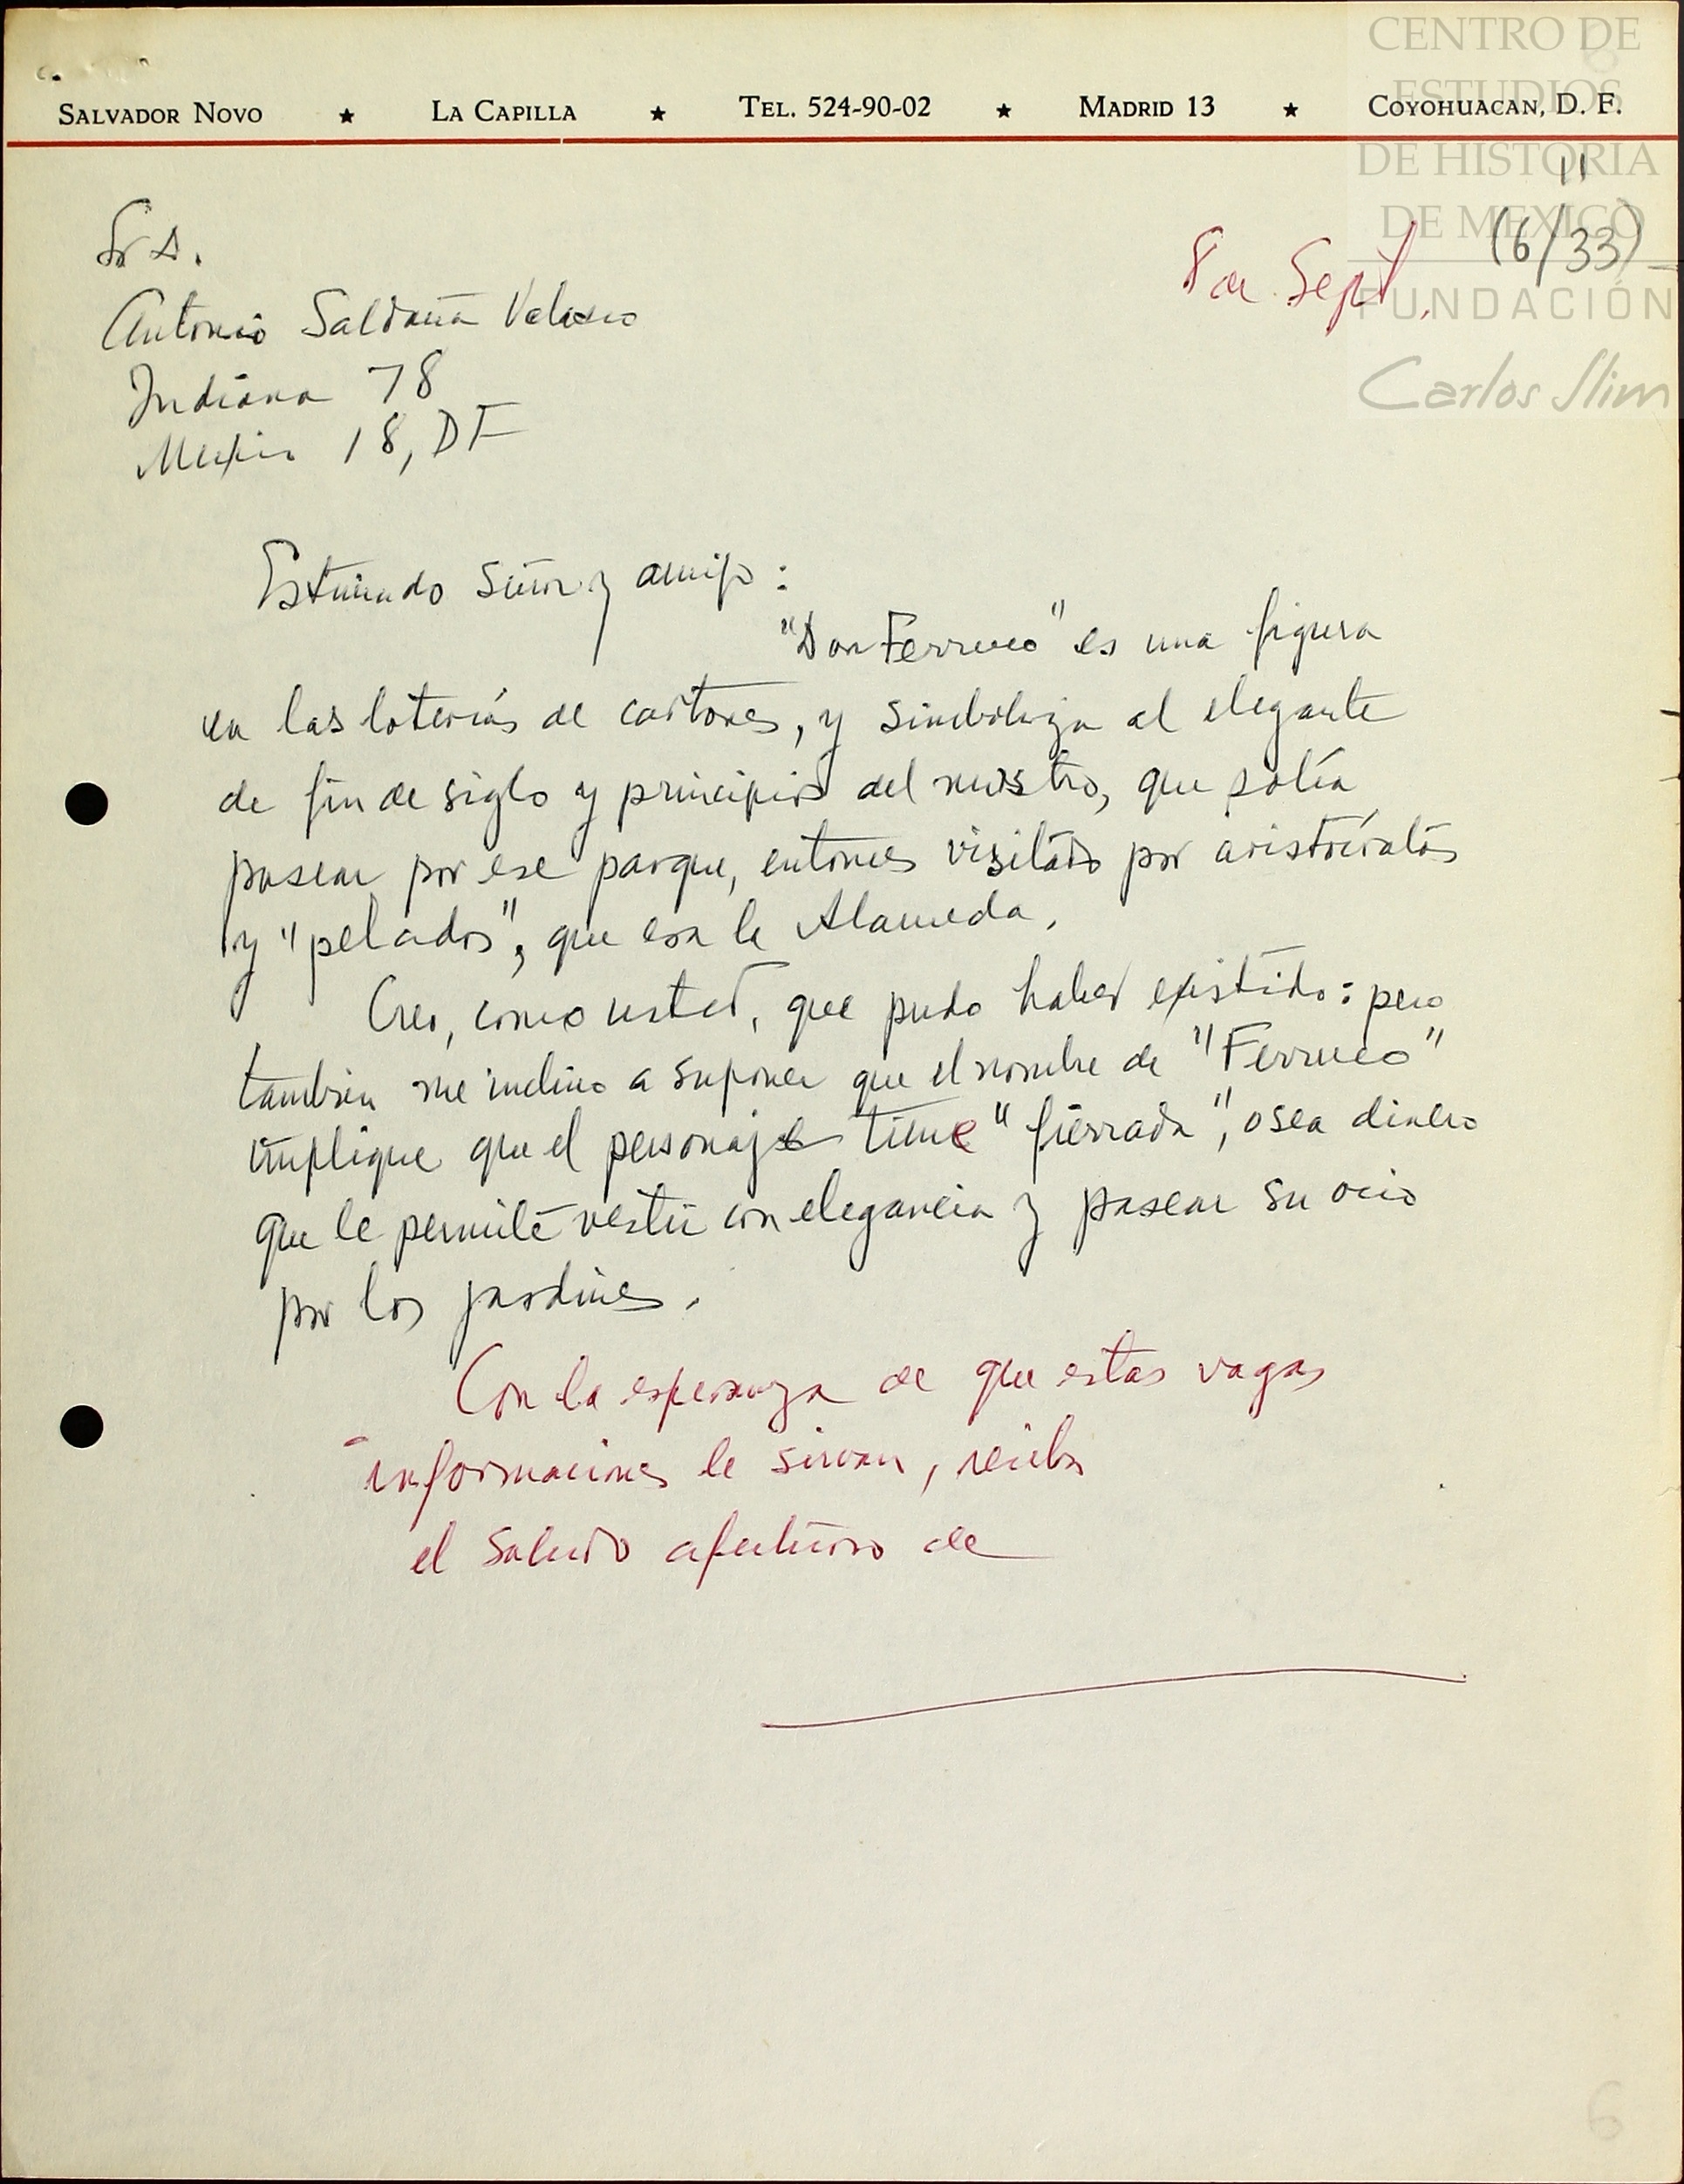 CENTRO DE
ESTUDIOS
DE HISTORIA
DE MEXICO
FUNDACIÓN
Carlos Slim
SALVADOR NOVO ★ LA CAPILLA ★ TEL. 524-90-02 ★ MADRID 13 ★ COYOHUACAN, D. F.
11
(6/33)
8 de Sept.
Sr D.
Antonio Saldaña Velasco
Indiana 78
Mexico 18, DF
Estimado señor y amigo:
"Don Ferruco" es una figura
en las loterías de cartones, y simboliza al elegante
de fin de siglo y principios del nuestro, que solía
pasear por ese parque, entonces visitado por aristócratas
y "pelados", que era la Alameda.
Creo, como usted, que pudo haber existido: pero
tambien me inclino a suponer que el nombre de "Ferruco"
implique que el personaje tiene "fierrada", o sea dinero
que le permite vestir con elegancia y pasear su ocio
por los jardines.
Con la esperanza de que estas vagas
informaciones le sirvan, reciba
el saludo afectuoso de
6